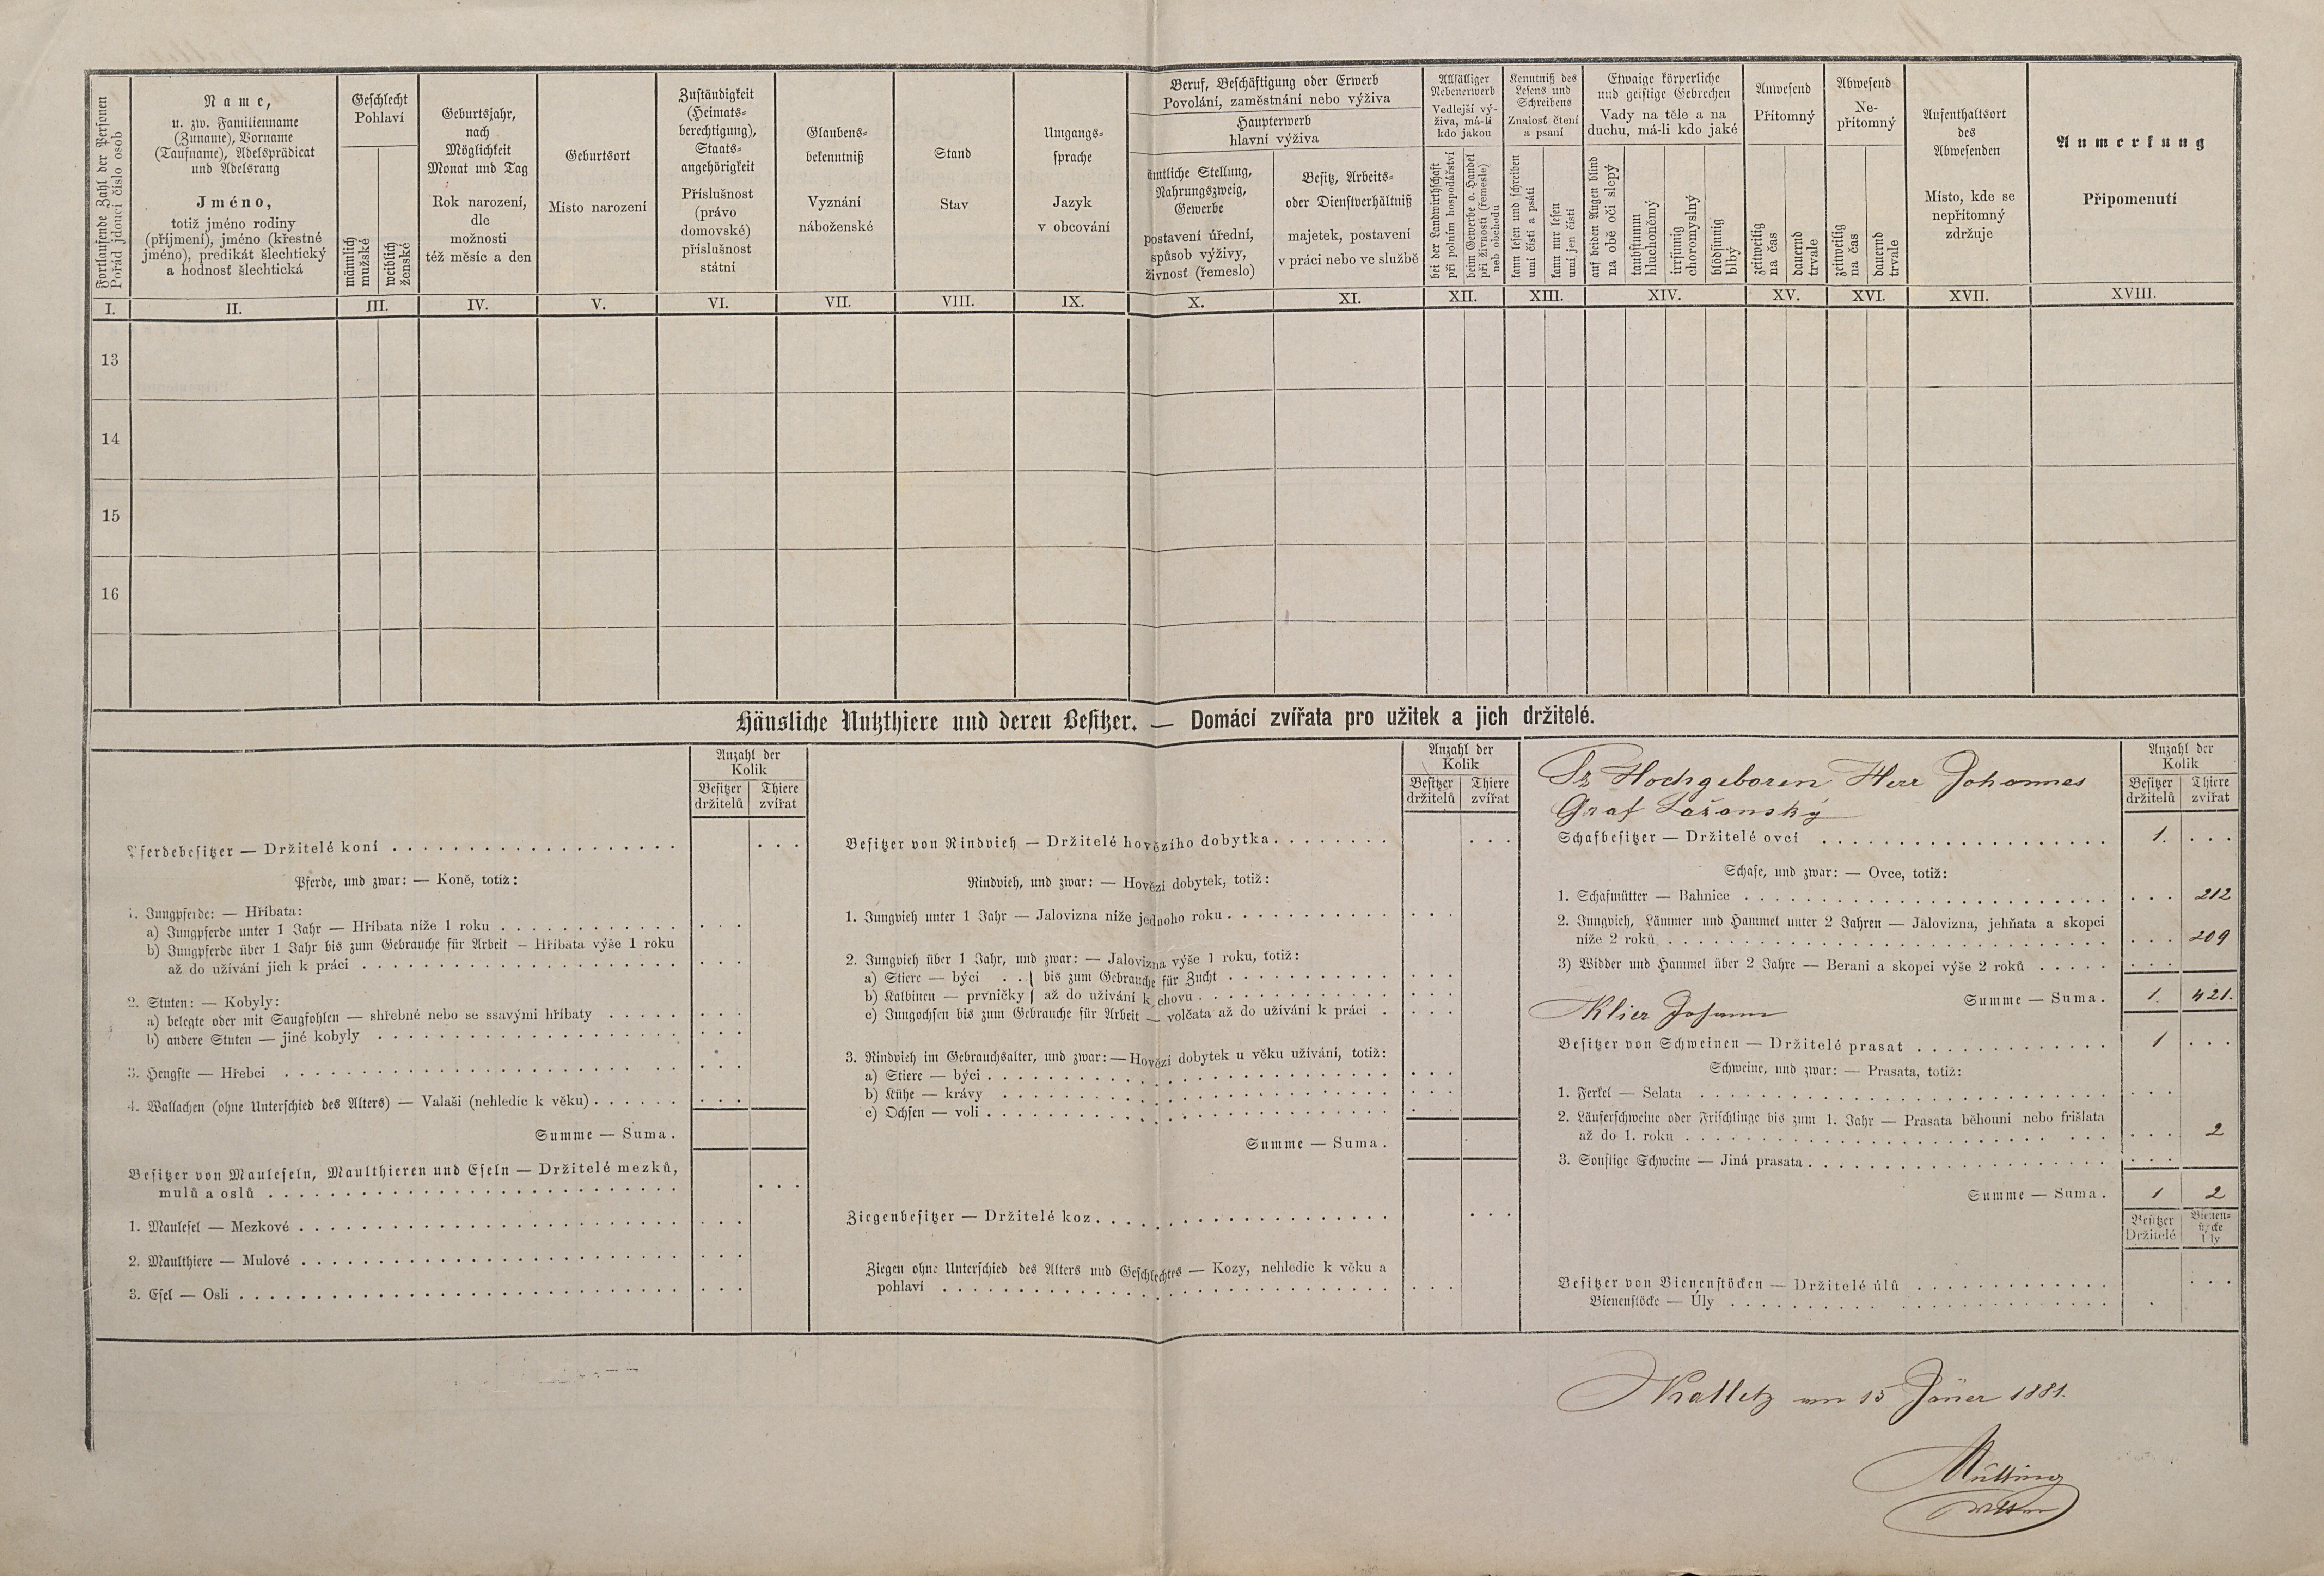 Fortlaufende Zahl der Personen
Pořád jdoucí číslo osob
Name,
u. zw. Familienname
(Zuname), Vorname
(Taufname), Adelsprädicat
und Adelsrang
Jméno,
totiž jméno rodiny
(příjmení), jméno (křestné
jméno), predikát šlechtický
a hodnosť šlechtická
Geschlecht
Pohlaví
männlich
mužské
weiblich
ženské
Geburtsjahr,
nach
Möglichkeit
Monat und Tag
Rok narození,
dle
možnosti
též měsíc a den
Geburtsort
Místo narození
Zuständigkeit
(Heimats-
berechtigung),
Staats-
angehörigkeit
Příslušnost
(právo
domovské)
příslušnost
státní
Glaubens-
bekenntniß
Vyznání
náboženské
Stand
Stav
Umgangs-
sprache
Jazyk
v obcování
Beruf, Beschäftigung oder Erwerb
Povolání, zaměstnání nebo výživa
Haupterwerb
hlavní výživa
ämtliche Stellung,
Nahrungszweig,
Gewerbe
postavení úřední,
spůsob výživy,
živnosť (řemeslo)
Besitz, Arbeits-
oder Dienstverhältniß
majetek, postavení
v práci nebo ve službě
Allfälliger
Nebenerwerb
Vedlejší vý-
živa, má-li
kdo jakou
bei der Landwirthschaft
při polním hospodářství
beim Gewerbe o. Handel
při živnosti (řemesle)
neb obchodu
Kenntniß des
Lesens und
Schreibens
Znalosť čtení
a psaní
kann lesen und schreiben
umí čísti a psáti
kann nur lesen
umí jen čísti
Etwaige körperliche
und geistige Gebrechen
Vady na těle a na
duchu, má-li kdo jaké
auf beiden Augen blind
na obě oči slepý
taubstumm
hluchoněmý
irrsinnig
choromyslný
blödsinnig
blbý
Anwesend
Přítomný
zeitweilig
na čas
dauernd
trvale
Abwesend
Ne-
přítomný
zeitweilig
na čas
dauernd
trvale
Aufenthaltsort
des
Abwesenden
Místo, kde se
nepřítomný
zdržuje
Anmerkung
Připomenutí
I. II. III. IV. V. VI. VII. VIII. IX. X. XI. XII. XIII. XIV. XV. XVI. XVII. XVIII.
13
14
15
16
Häusliche Nutzthiere und deren Besitzer. — Domácí zvířata pro užitek a jich držitelé.
Anzahl der
Kolik
Besitzer Thiere
držitelů zvířat
Pferdebesitzer — Držitelé koní
Pferde, und zwar: — Koně, totiž:
1. Jungpferde: — Hříbata:
a) Jungpferde unter 1 Jahr — Hříbata níže 1 roku
b) Jungpferde über 1 Jahr bis zum Gebrauche für Arbeit — Hříbata výše 1 roku
až do užívání jich k práci
2. Stuten: — Kobyly:
a) belegte oder mit Saugfohlen — shřebné nebo se ssavými hříbaty
b) andere Stuten — jiné kobyly
3. Hengste — Hřebci
4. Wallachen (ohne Unterschied des Alters) — Valaši (nehledíc k věku)
Summe — Suma.
Besitzer von Mauleseln, Maulthieren und Eseln — Držitelé mezků,
mulů a oslů
1. Maulesel — Mezkové
2. Maulthiere — Mulové
3. Esel — Osli
Anzahl der
Kolik
Besitzer Thiere
držitelů zvířat
Besitzer von Rindvieh — Držitelé hovězího dobytka.
Rindvieh, und zwar: — Hovězí dobytek, totiž:
1. Jungvieh unter 1 Jahr — Jalovizna níže jednoho roku
2. Jungvieh über 1 Jahr, und zwar: — Jalovizna výše 1 roku, totiž:
a) Stiere — býci . . } bis zum Gebrauche für Zucht
b) Kalbinen — prvničky } až do užívání k chovu
c) Jungochsen bis zum Gebrauche für Arbeit — volčata až do užívání k práci
3. Rindvieh im Gebrauchsalter, und zwar: — Hovězí dobytek u věku užívání, totiž:
a) Stiere — býci
b) Kühe — krávy
c) Ochsen — voli
Summe — Suma.
Ziegenbesitzer — Držitelé koz.
Ziegen ohne Unterschied des Alters und Geschlechtes — Kozy, nehledíc k věku a
pohlaví
Anzahl der
Kolik
Besitzer Thiere
držitelů zvířat
Sr Hochgeboren Herr Johannes
Graf Lažanský
Schafbesitzer — Držitelé ovcí 1.
Schafe, und zwar: — Ovce, totiž:
1. Schafmütter — Bahnice 212
2. Jungvieh, Lämmer und Hammel unter 2 Jahren — Jalovizna, jehňata a skopci
níže 2 roků 209
3) Widder und Hammel über 2 Jahre — Berani a skopci výše 2 roků
Summe — Suma. 1. 421.
Klier Johann
Besitzer von Schweinen — Držitelé prasat 1
Schweine, und zwar: — Prasata, totiž:
1. Ferkel — Selata
2. Läuferschweine oder Frischlinge bis zum 1. Jahr — Prasata běhouni nebo frišlata
až do 1. roku 2
3. Sonstige Schweine — Jiná prasata
Summe — Suma. 1 2
Besitzer Bienen-
stöcke
Držitelé Úly
Besitzer von Bienenstöcken — Držitelé úlů
Bienenstöcke — Úly
am 15 Jäner 1881.